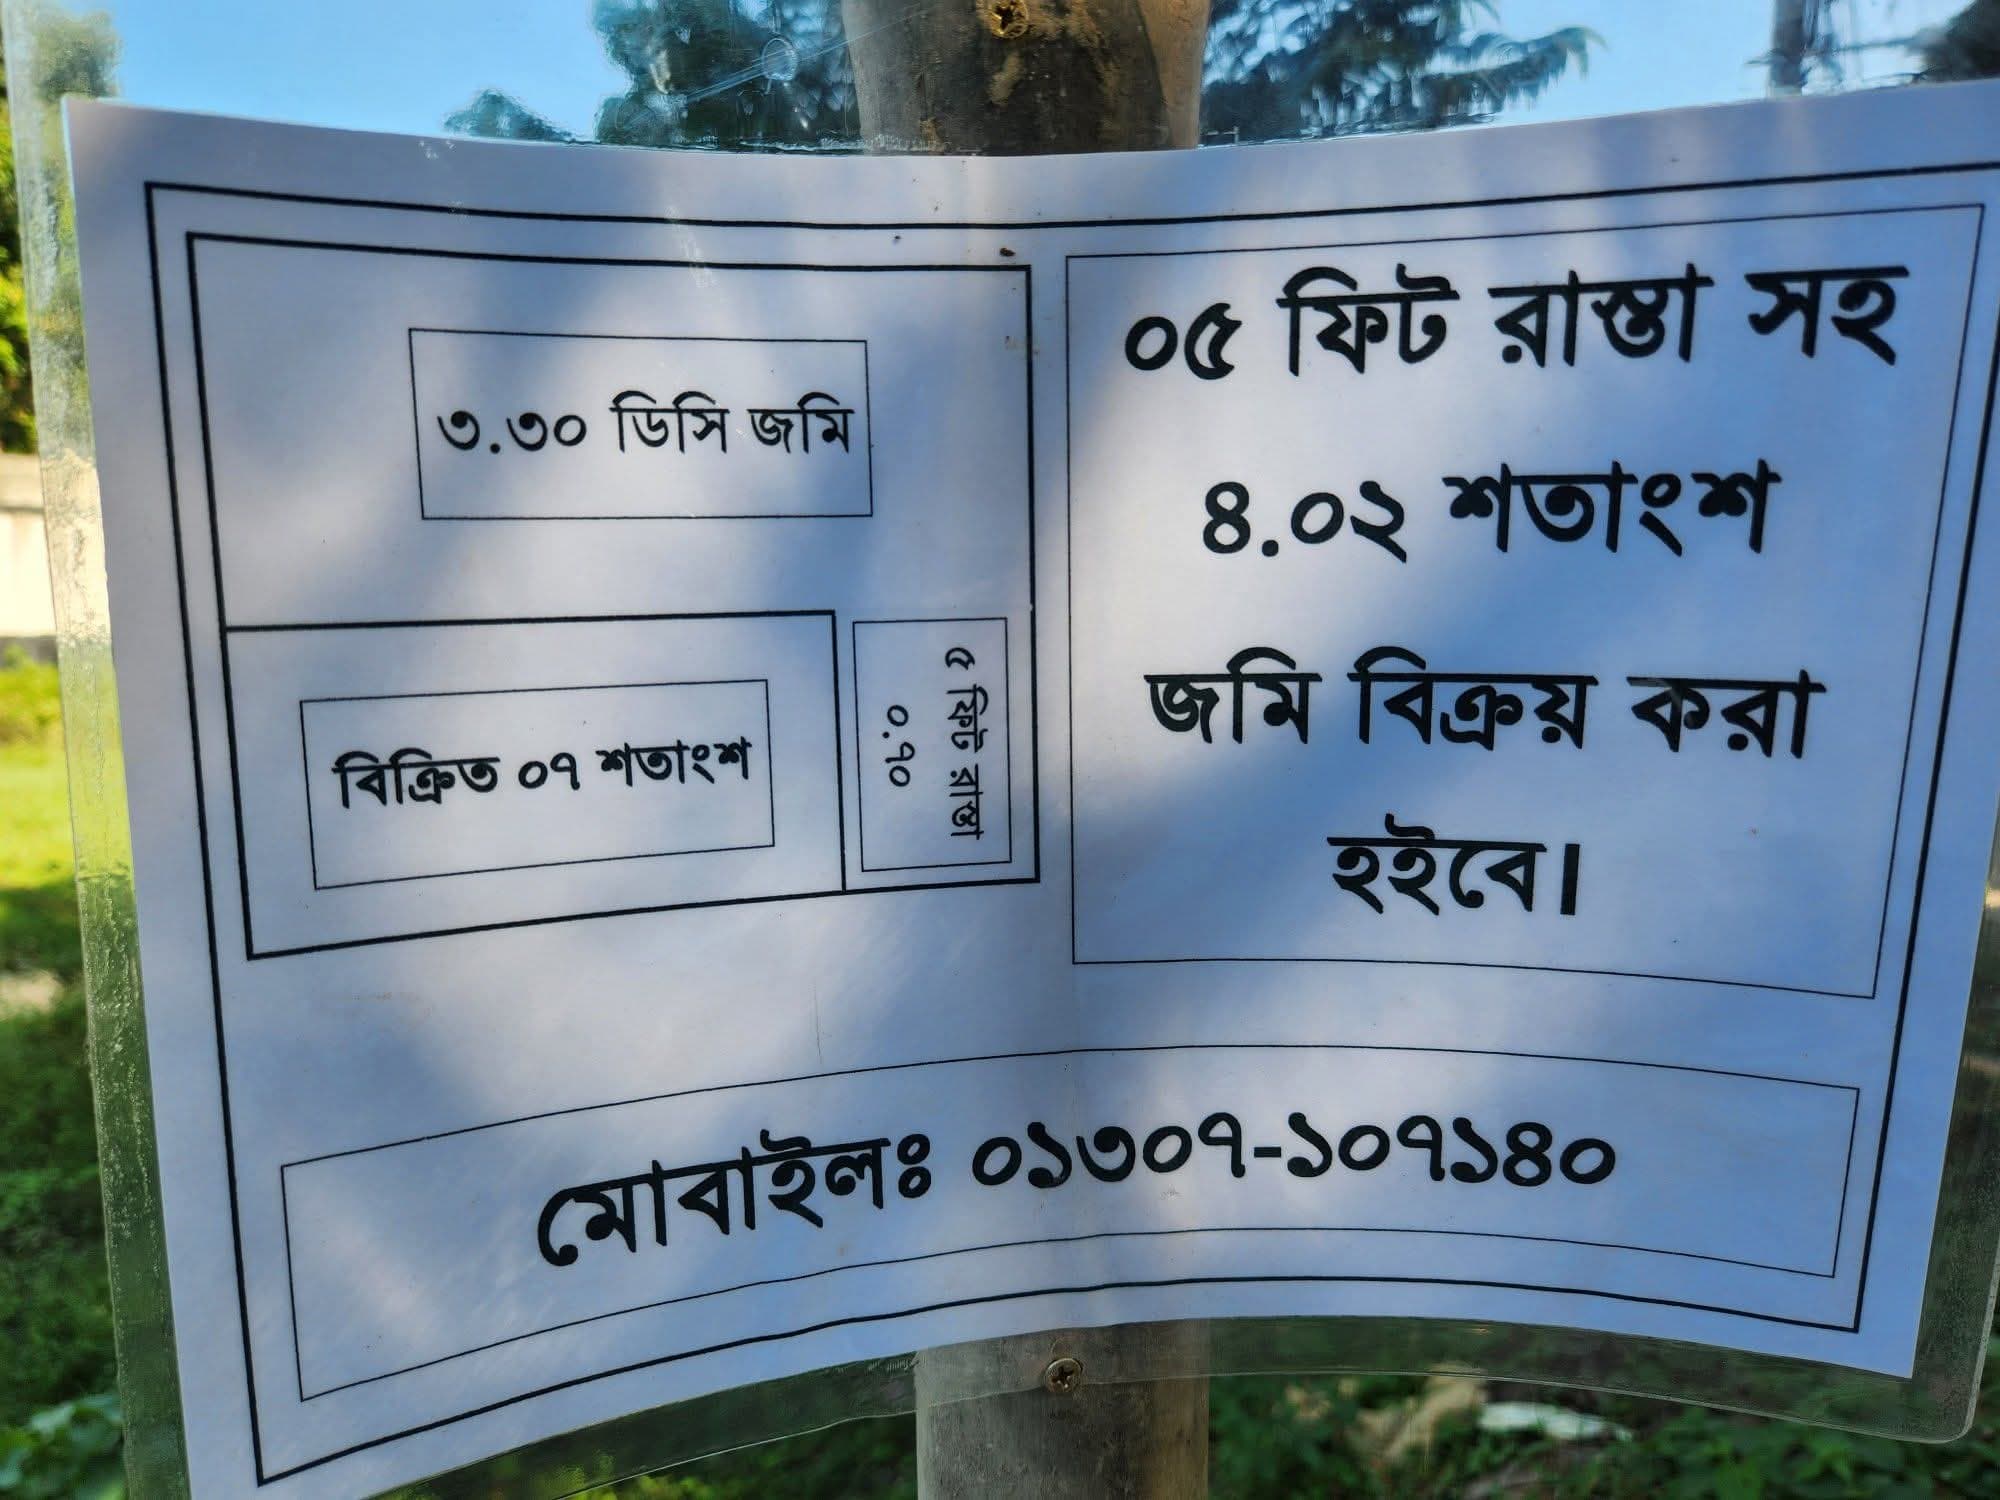 ৩.৩০ ডিসি জমি
বিক্রিত ০৭ শতাংশ
৫ ফিট রাস্তা
০.৭০
০৫ ফিট রাস্তা সহ
৪.০২ শতাংশ
জমি বিক্রয় করা
হইবে।
মোবাইলঃ ০১৩০৭-১০৭১৪০